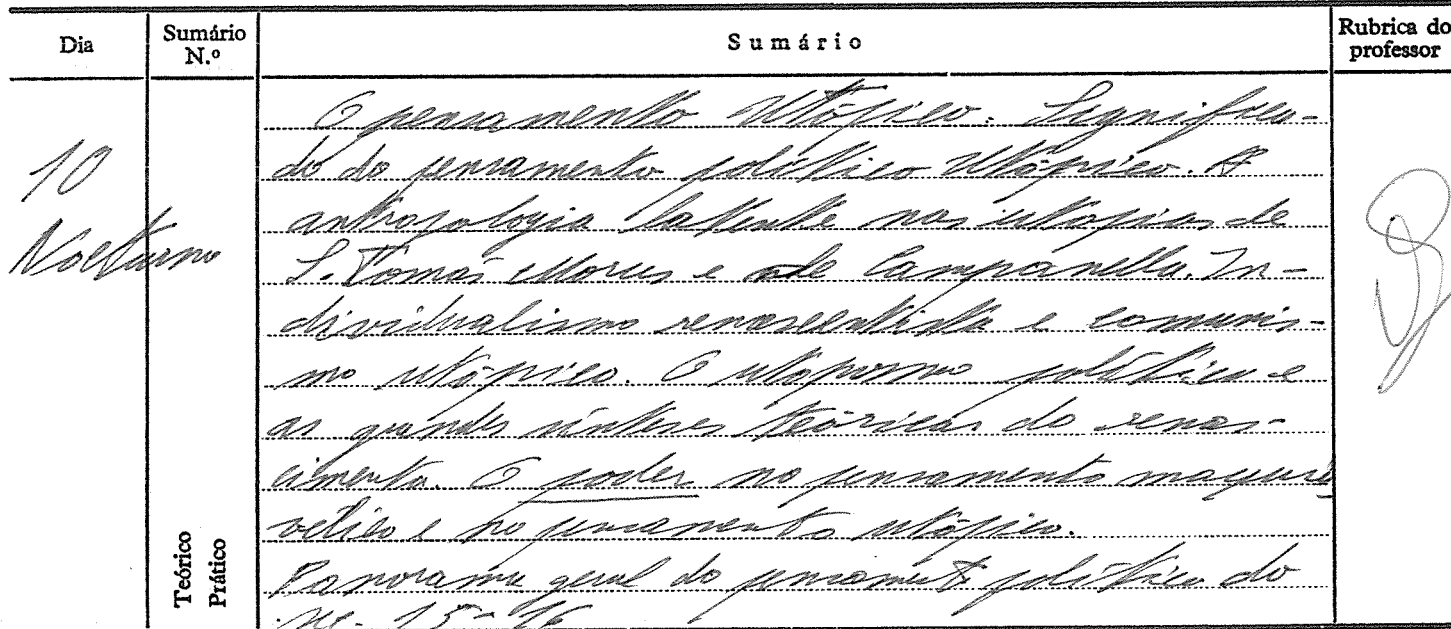 Dia
Sumário N.º
Sumário
Rubrica do professor
10
Nocturno
Teórico
Prático
O pensamento utópico. Significa-
do do pensamento político utópico. A
antropologia latente nas utopias de
S. Tomás Morus e de Campanella. In-
dividualismo renascentista e comunis-
mo utópico. O utopismo político e
as grandes sínteses teóricas do renas-
cimento. O poder no pensamento maquia
vélico e no pensamento utópico.
Panorama geral do pensamento político do
séc. 15-16